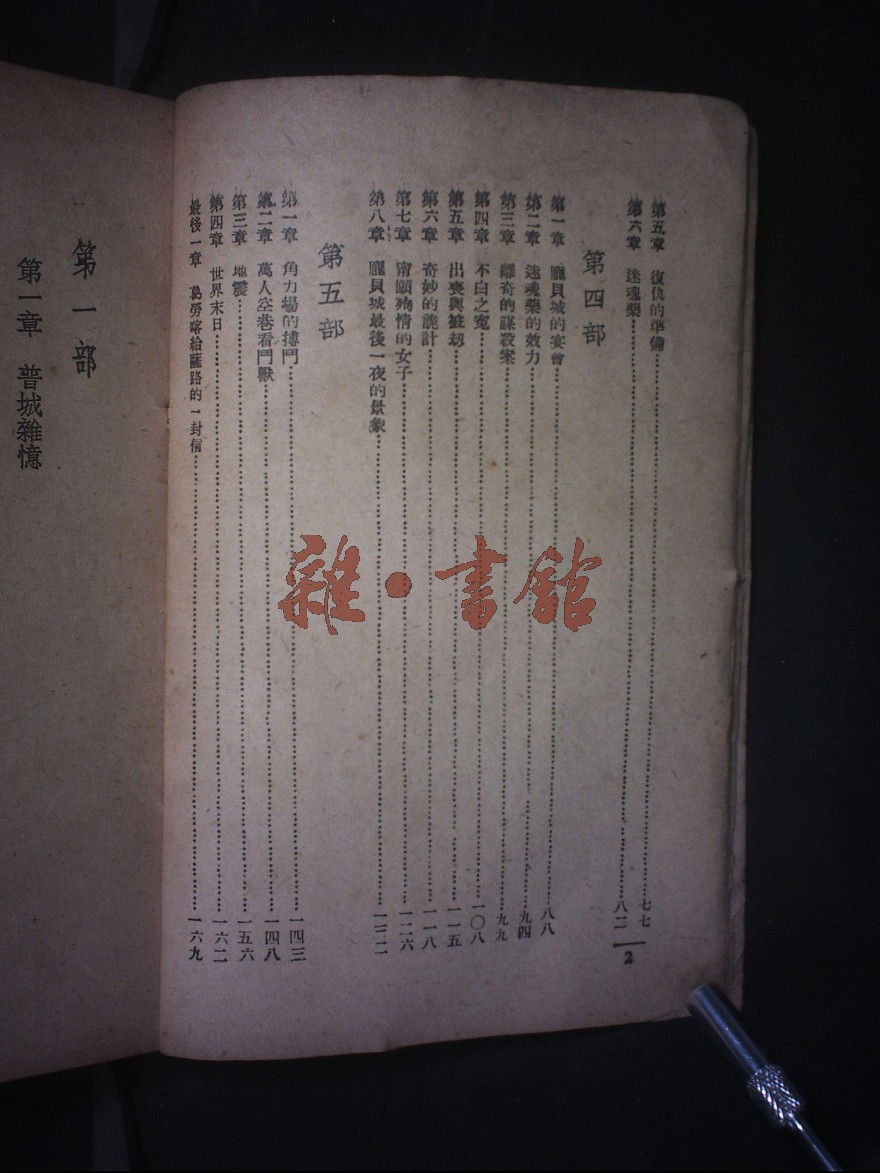 第五章　復仇的準備……七七
第六章　迷魂藥……八二
第四部
第一章　龐貝城的宴會……八八
第二章　迷魂藥的效力……九四
第三章　離奇的謀殺案……九九
第四章　不白之冤……一〇八
第五章　出喪與被刧……一一五
第六章　奇妙的詭計……一一八
第七章　甯願殉情的女子……一二六
第八章　龐貝城最後一夜的景象……一三二
第五部
第一章　角力場的搏鬥……一四三
第二章　萬人空巷看鬥獸……一四八
第三章　地震……一五六
第四章　世界末日……一六二
最後一章　葛勞喀給薩路的一封信……一六九
2
第一部
第一章　普城雜憶
雜・書館